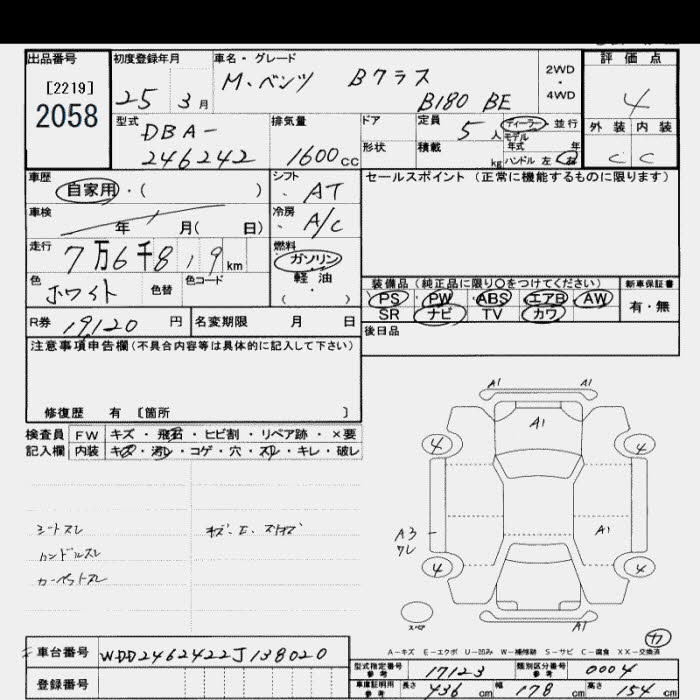 出品番号 初度登録年月 車名・グレード 評価点
[2219] M・ベンツ Bクラス 2WD
2058 25 3月 B180 BE ・ 4WD 4
型式 排気量 ドア 定員 5人 ディーラー・並行 外装 内装
DBA- 形状 積載 kg モデル年式 年
246242 1600cc ハンドル 左・右 C C
車歴 自家用・( ) シフト AT セールスポイント(正常に機能するものに限ります)
車検 年 月( 日) 冷房 A/C
走行 7万6千819km 燃料 ガソリン
色 ホワイト 色替 色コード 軽油
( )
装備品(純正品に限り○をつけてください) 新車保証書
PS PW ABS エアB AW 有・無
SR ナビ TV カワ
R券 19120円 名変期限 月 日 後日品
注意事項申告欄(不具合内容等は具体的に記入して下さい)
修復歴 有 [箇所 ]
検査員 FW キズ・飛石・ヒビ割・リペア跡・×要
記入欄 内装 キズ・汚レ・コゲ・穴・スレ・キレ・破レ
シートスレ
ハンドルスレ
カーペットスレ
A1 A1
A1
4 4
A3 ワレ A1
4 4
スペア A1
A-キズ E-エクボ U-凹み W-補修跡 S-サビ C-腐食 XX-交換済
車台番号 WDD2462422J138020
登録番号
型式指定番号 参考 17123 類別区分番号 参考 0004
車庫証明用 参考 長さ 436cm 幅 178cm 高さ 154cm